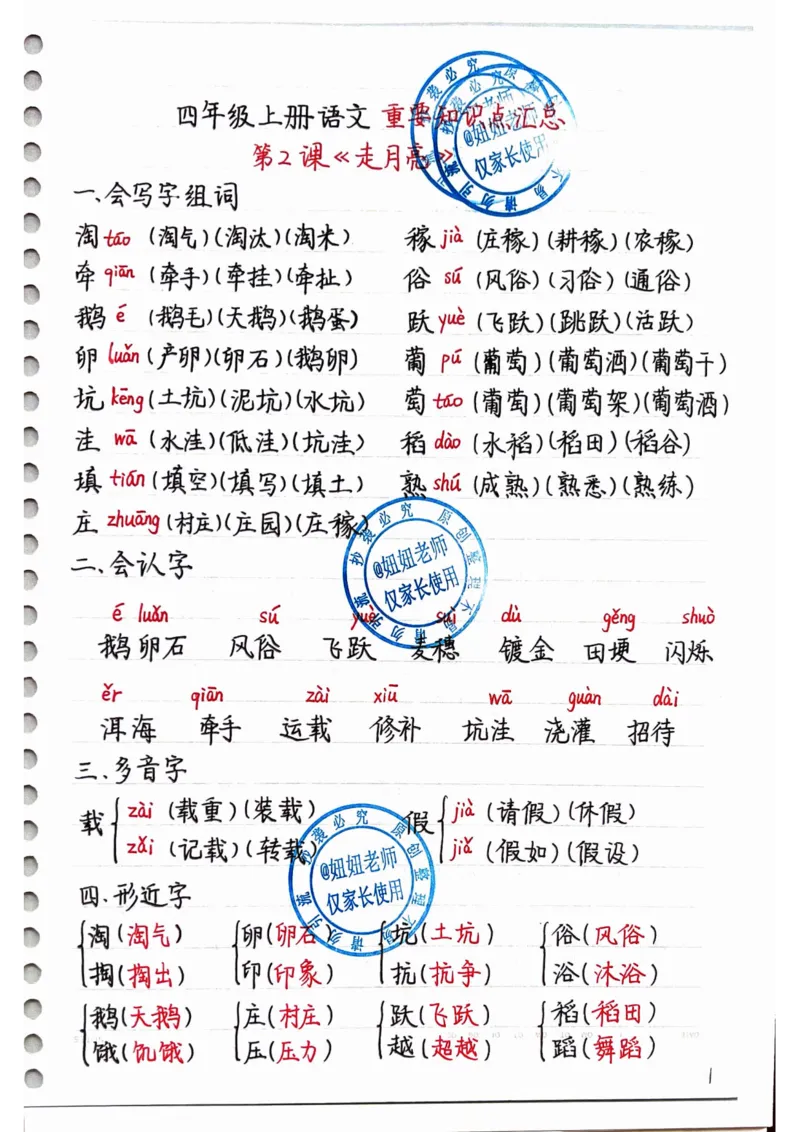 四年级上册语文 重要知识点汇总
第2课《走月亮》
一、会写字组词
淘 táo (淘气)(淘汰)(淘米) 稼 jià (庄稼)(耕稼)(农稼)
牵 qiān (牵手)(牵挂)(牵扯) 俗 sú (风俗)(习俗)(通俗)
鹅 é (鹅毛)(天鹅)(鹅蛋) 跃 yuè (飞跃)(跳跃)(活跃)
卵 luǎn (产卵)(卵石)(鹅卵) 葡 pú (葡萄)(葡萄酒)(葡萄干)
坑 kēng (土坑)(泥坑)(水坑) 萄 táo (葡萄)(葡萄架)(葡萄酒)
洼 wā (水洼)(低洼)(坑洼) 稻 dào (水稻)(稻田)(稻谷)
填 tián (填空)(填写)(填土) 熟 shú (成熟)(熟悉)(熟练)
庄 zhuāng (村庄)(庄园)(庄稼)
二、会认字
é luǎn sú yuè suì dù gěng shuò
鹅卵石 风俗 飞跃 麦穗 镀金 田埂 闪烁
ěr qiān zài xiū wā guàn dài
洱海 牵手 运载 修补 坑洼 浇灌 招待
三、多音字
载 { zài (载重)(装载) 假 { jià (请假)(休假)
zǎi (记载)(转载) jiǎ (假如)(假设)
四、形近字
淘(淘气) 卵(卵石) 坑(土坑) 俗(风俗)
掏(掏出) 印(印象) 抗(抗争) 浴(沐浴)
鹅(天鹅) 庄(村庄) 跃(飞跃) 稻(稻田)
饿(饥饿) 压(压力) 越(超越) 蹈(舞蹈)
1
@妞妞老师
仅家长使用
原创整理不易请勿引流抄袭必究
@妞妞老师
仅家长使用
原创整理不易请勿引流抄袭必究
@妞妞老师
仅家长使用